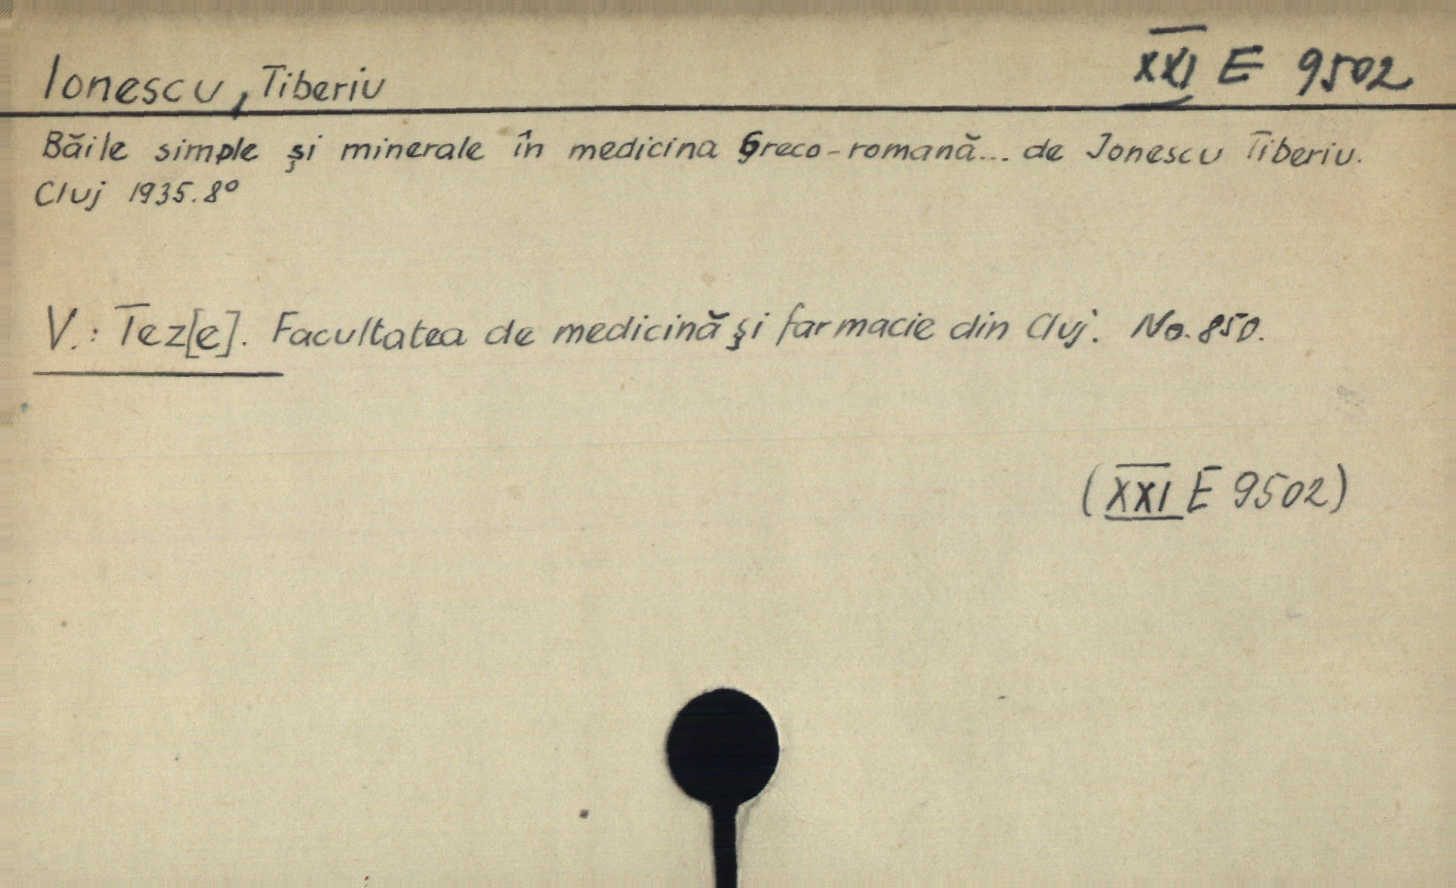 Ionescu, Tiberiu
XXI E 9502
Băile simple şi minerale în medicina Greco-romană... de Jonescu Tiberiu.
Cluj 1935. 8°
V.: Tez[e]. Facultatea de medicină şi farmacie din Cluj. No. 850.
(XXI E 9502)